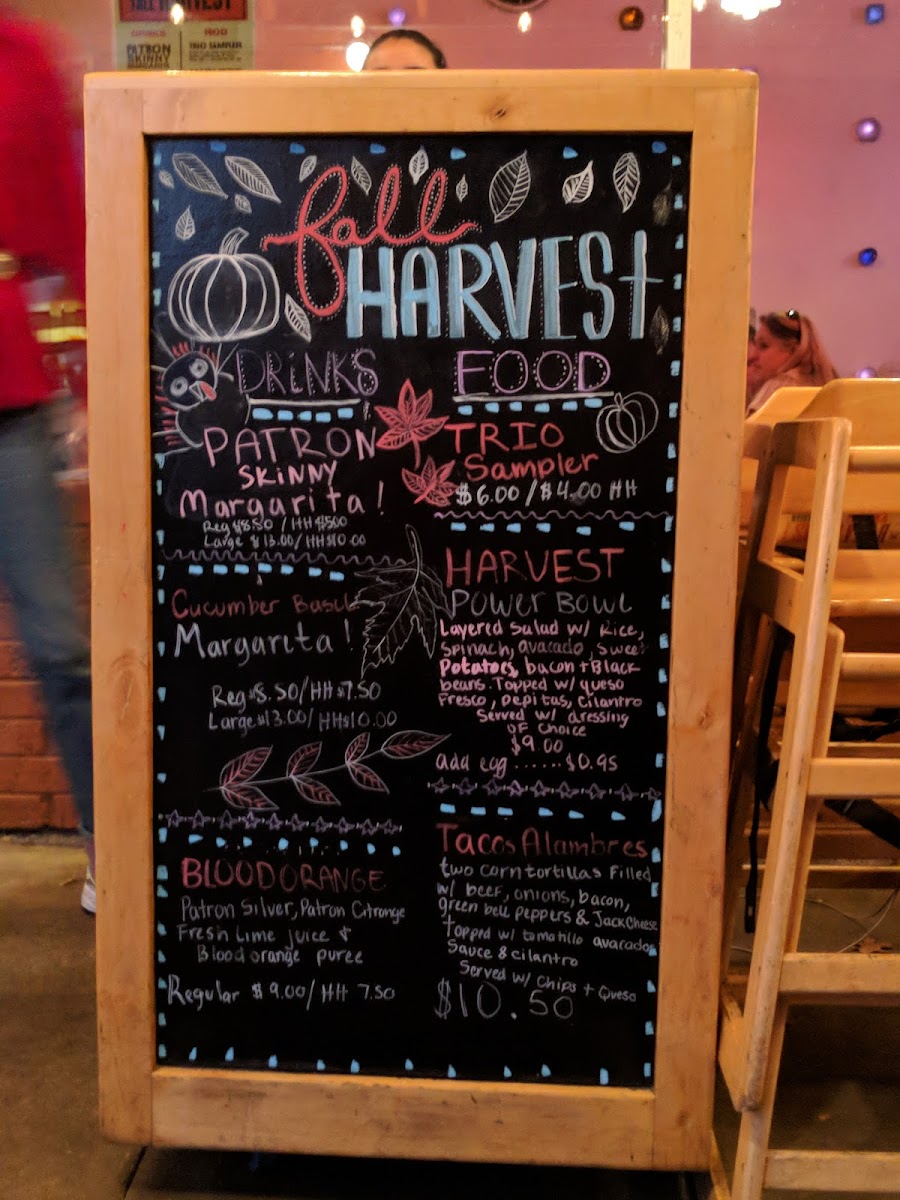 THE HARVEST
DRINKS
PATRON
SKINNY
MARGARITA
FOOD
TRIO SAMPLER
fall
HARVEST
DRINKS
PATRON
SKINNY
Margarita!
Reg $8.50 / HH $500
Large $13.00 / HH $10.00
Cucumber Basil
Margarita!
Reg $8.50/HH $7.50
Large $13.00/HH $10.00
BLOOD ORANGE
Patron Silver, Patron Citronge
Fresh Lime juice &
Blood orange puree
Regular $9.00/ HH 7.50
FOOD
TRIO
Sampler
$6.00 / $4.00 HH
HARVEST
POWER BOWL
Layered Salad w/ Rice,
Spinach, avacado, Sweet
Potatoes, bacon + Black
beans. Topped w/ queso
Fresco, pepitas, Cilantro
Served w/ dressing
OF Choice
$9.00
add egg ...... $0.95
Tacos Alambres
two corn tortillas Filled
w/ beef, onions, bacon,
green bell peppers & Jack Cheese
topped w/ tomatillo avacados
Sauce & cilantro
Served w/ Chips + Queso
$10.50